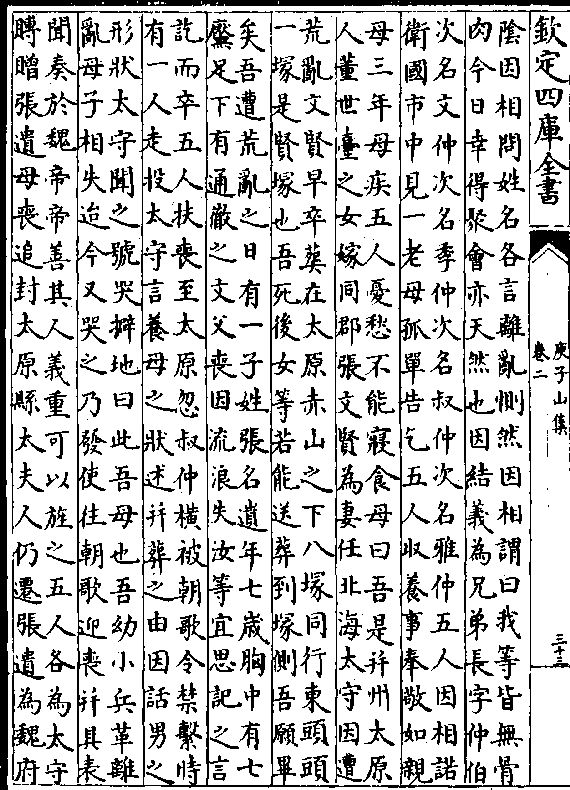 欽定四庫全書
庾子山集
卷二
三十三
陰因相問姓名各言離亂惻然因相謂曰我等皆無骨
肉今日幸得聚會亦天然也因結義為兄弟長字仲伯
次名文仲次名季仲次名叔仲次名雅仲五人因相諾
衛國市中見一老母孤單告乞五人收養事奉敬如親
母三年母疾五人憂愁不能寢食母曰吾是并州太原
人董世臺之女嫁同郡張文賢為妻任北海太守因遭
荒亂文賢早卒葬在太原赤山之下八塚同行東頭頭
一塚是賢塚也吾死後女等若能送葬到塚側吾願畢
矣吾遭荒亂之日有一子姓張名遺年七歲胸中有七
黶足下有通徹之文父喪因流浪失汝等宜思記之言
訖而卒五人扶喪至太原忽叔仲橫被朝歌令禁繫時
有一人走投太守言養母之狀述并葬之由因話男之
形狀太守聞之號哭擗地曰此吾母也吾幼小兵革離
亂母子相失迨今又哭之乃發使往朝歌迎喪并具表
聞奏於魏帝帝善其人義重可以旌之五人各為太守
賻贈張遺母喪追封太原縣太夫人仍遷張遺為魏府